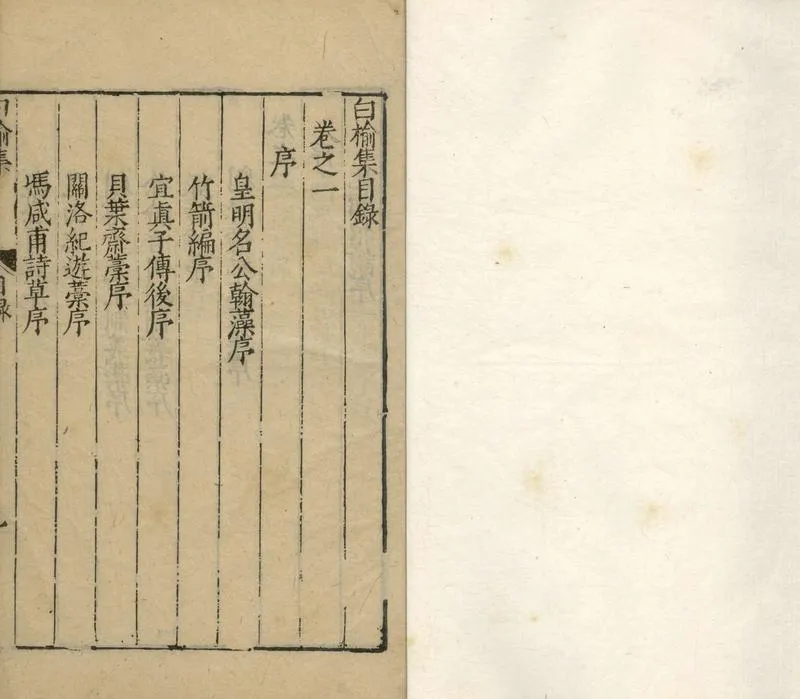 白榆集目錄
卷之一
序
皇明名公翰藻序
竹箭編序
宜眞子傳後序
貝葉齋藁序
關洛紀遊藁序
馮咸甫詩草序
白榆集
目錄